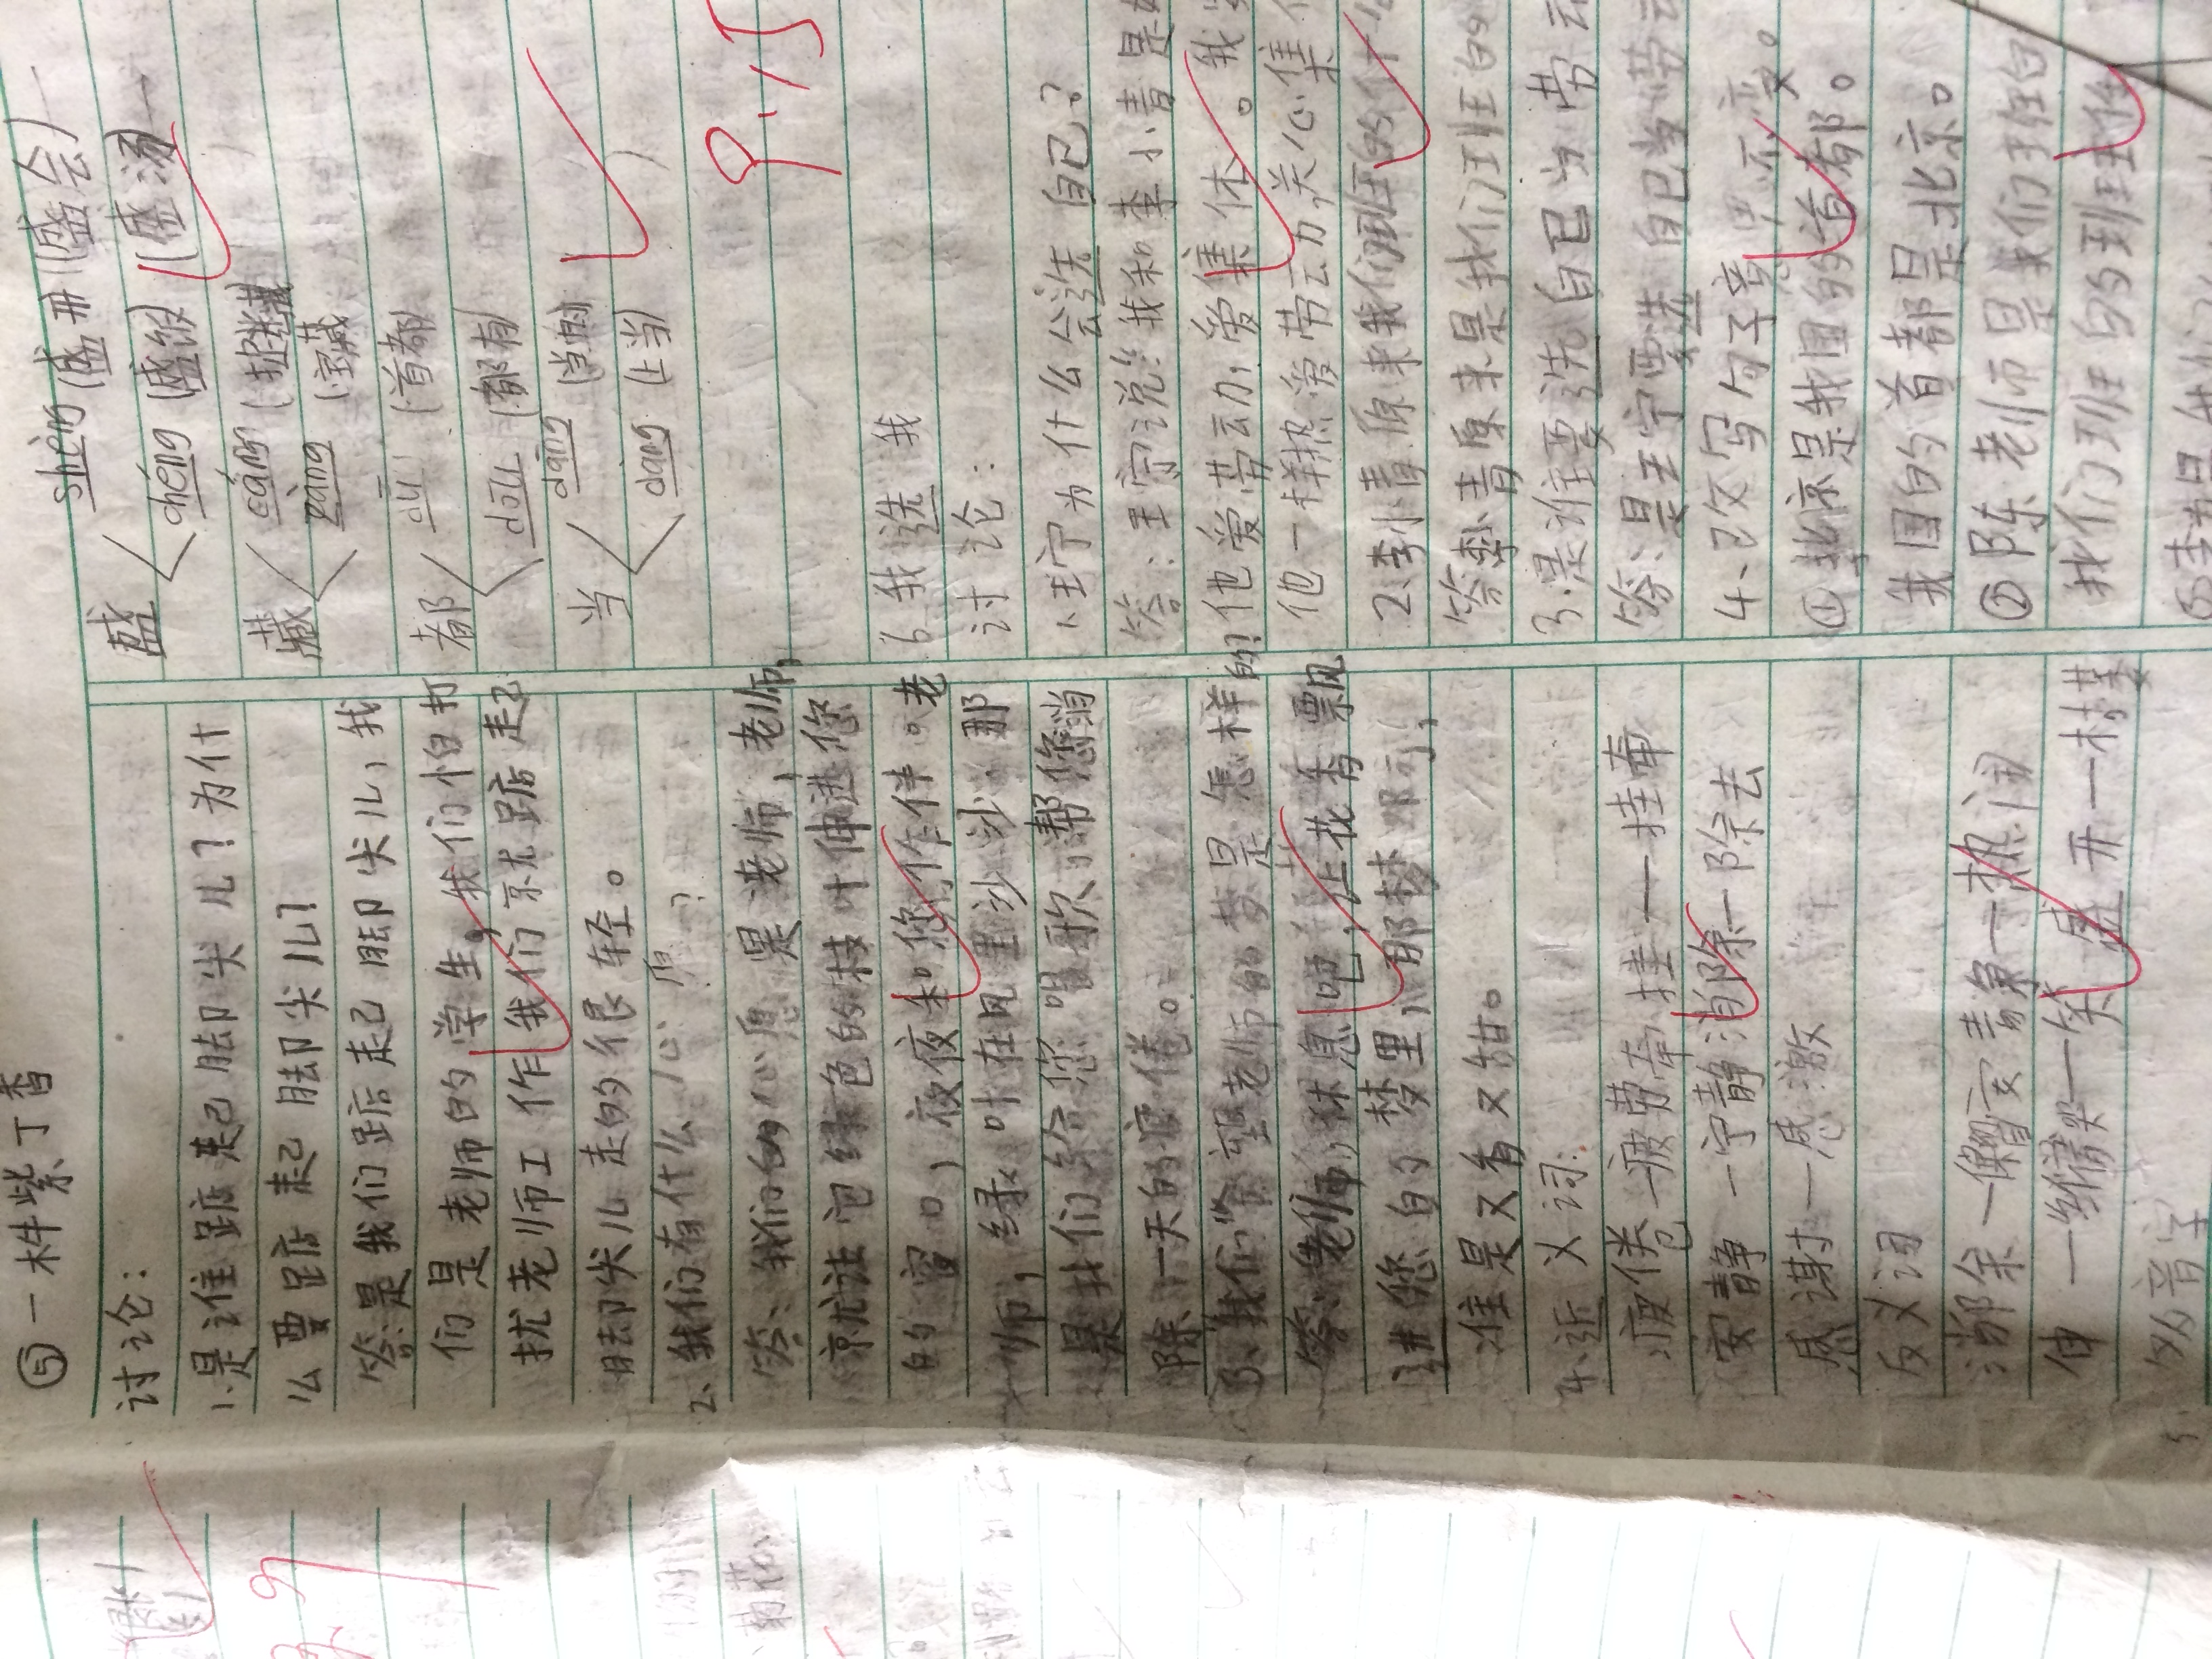 ⑤一株紫丁香
讨论:
1、是谁踮起脚尖儿?为什
么要踮起脚尖儿?
答:是我们踮起脚尖儿,我
们是老师的学生,我们怕打
扰老师工作,我们就踮起
脚尖儿走的很轻。
2、我们有什么心愿?
答:我们的心愿是老师,老师,
就让它绿色的枝叶伸进您
的窗口,夜夜和您作伴。老
师,绿叶在风里沙沙,那
是我们给您唱歌,帮您消
除一天的疲倦。
3、我们希望老师的梦是怎样的?
答:老师,休息吧,让花香飘
进您的梦里,那梦啊,
准是又香又甜。
4、近义词:
疲倦—疲劳 牵挂—挂牵
安静—宁静 消除—除去
感谢—感激
反义词
消除— 安静—热闹
伸—缩 哭—笑 盛开—枯萎
多音字
5.
盛
shèng (盛开)(盛会)
chéng (盛饭)(盛汤)
藏
cáng (捉迷藏)
zàng (宝藏)
都
dū (首都)
dōu (都有)
当
dāng (当时)
dàng (上当)
9.15
6 我选我
讨论:
1、王宁为什么会选自己?
答:王宁说:我和李小青是
他爱劳动,爱集体。我
他一样热爱劳动,关心集
2、李小青原来我们班的什
答:李小青原来是我们班的
3、是谁要选自己当劳
答:是王宁要选自己当劳
4、改写句子意思不变。
①北京是我国的首都。
我国的首都是北京。
②陈老师是我们班的
我们班的班任